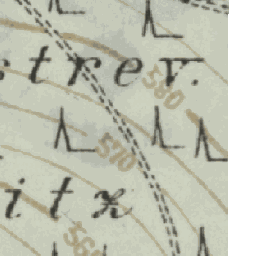 strev.
580
570
itz
560